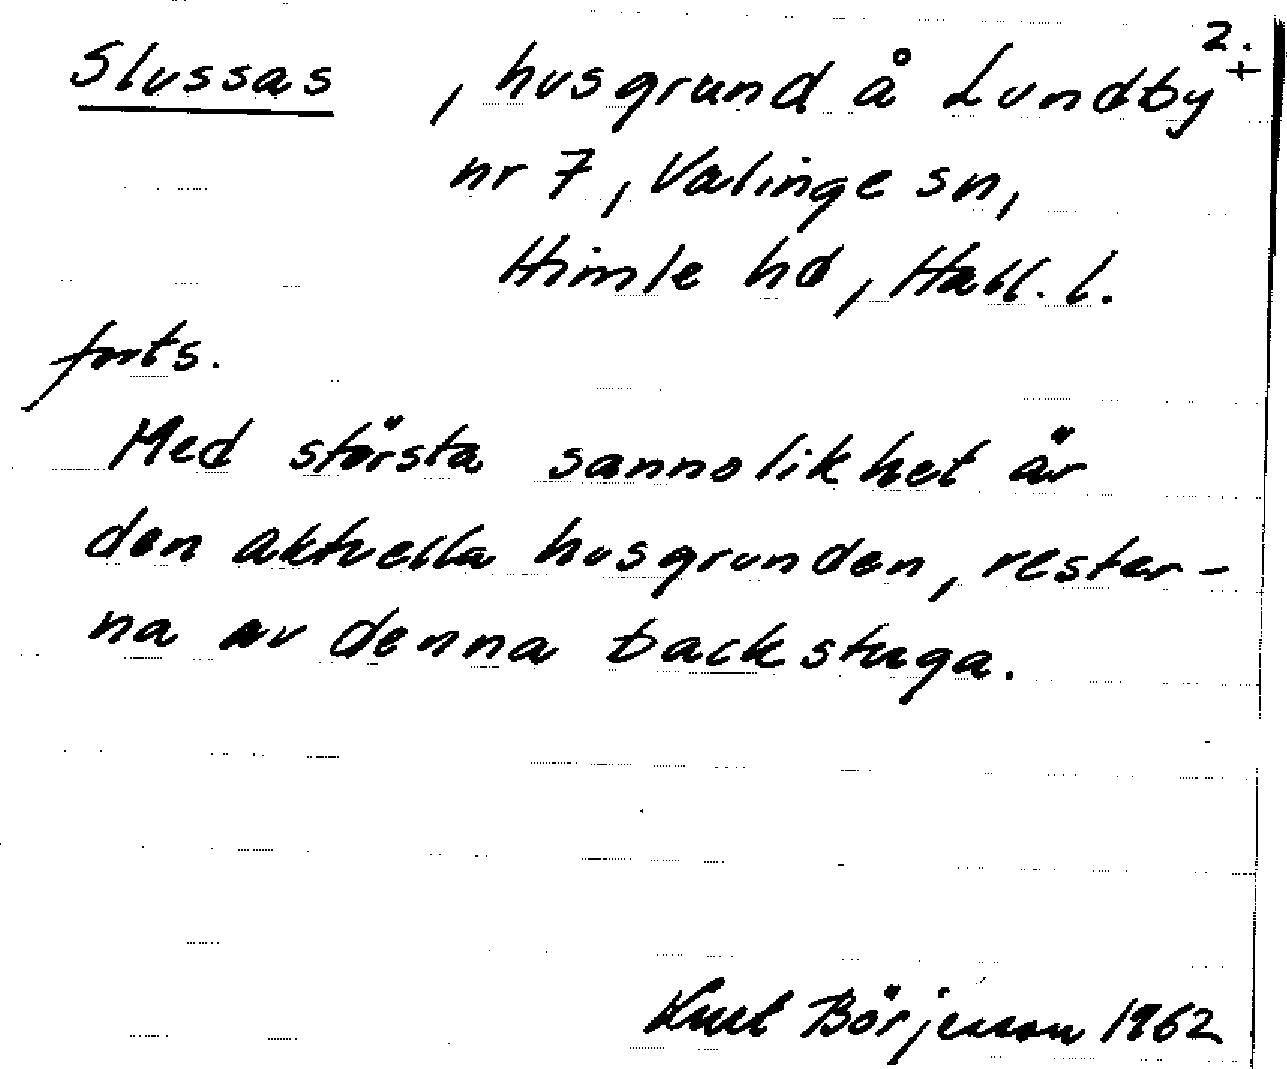 2.
+
Slussas , husgrund å Lundby
nr 7, Valinge sn,
Himle hd, Hall. l.
forts.
Med största sannolikhet är
den aktuella husgrunden, rester-
na av denna backstuga.
Knut Börjesson 1962